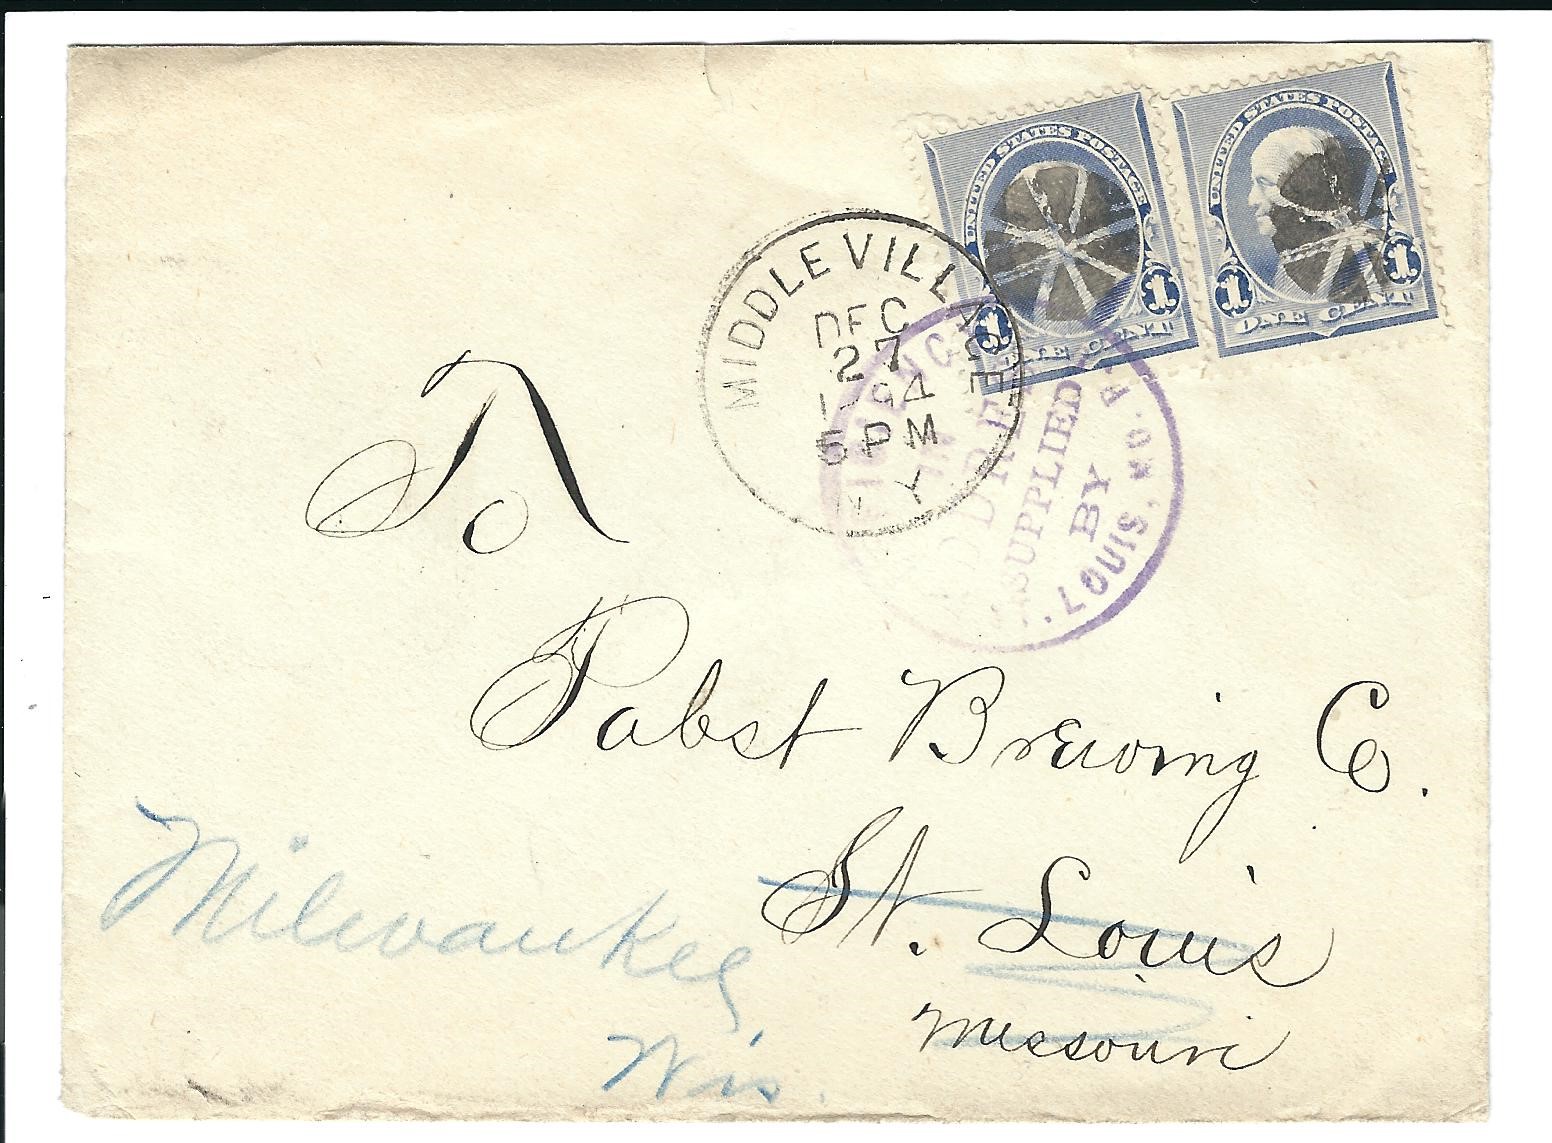 UNITED STATES POSTAGE
1 1
ONE CENT
UNITED STATES POSTAGE
1 1
ONE CENT
MIDDLEVILLE
DEC
27
5 PM
IN
SUPPLIED
BY
LOUIS, MO. P.
To
Pabst Brewing Co.
St. Louis
Missouri
Milwaukee
Wis.